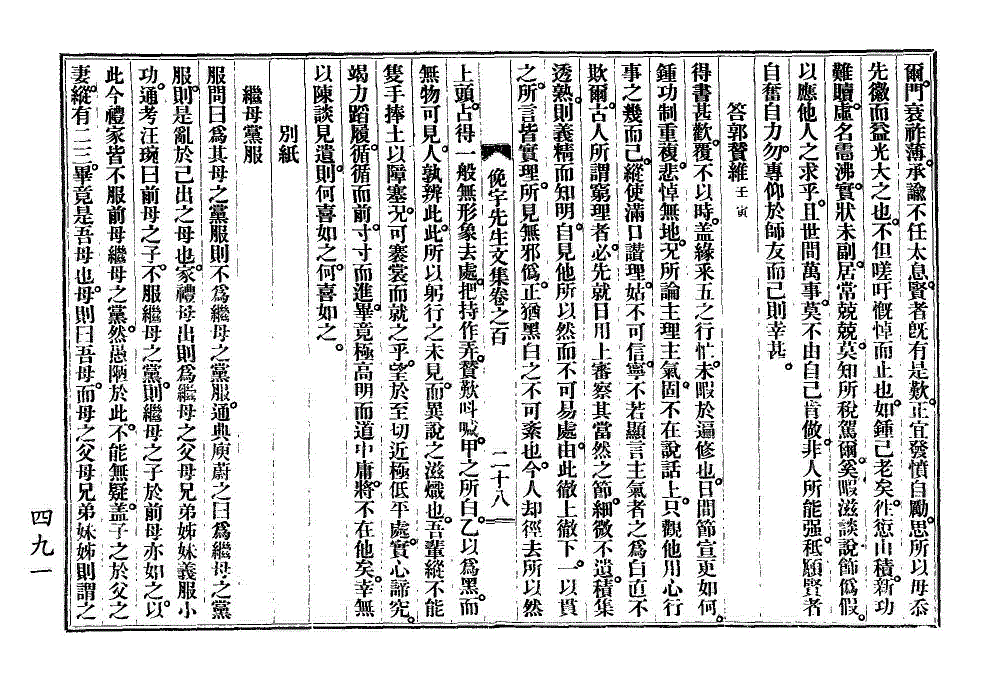 爾。門衰祚薄。承諭不任太息。賢者旣有是歎。正宜發憤自勵。思所以毋忝
先徽而益光大之也。不但嗟吁慨悼而止也。如鍾已老矣。徃愆山積。新功
難贖。虛名霈沸。實狀未副。居常兢兢。莫知所稅駕爾。奚暇滋談說飾爲假。
以應他人之求乎。且世間萬事。莫不由自己肯做。非人所能强。秪願賢者
自奮自力。勿專仰於師友而已則幸甚。
答郭賛維 壬寅
得書甚歡。覆不以時。盖緣釆五之行忙。未暇於遍修也。日間節宣更如何。
鍾功制重複。悲悼無地。况所論主理主氣。固不在說話上。只觀他用心行
事之幾而已。縱使滿口讃理。姑不可信。寧不若顯言主氣者之爲白直不
欺爾。古人所謂窮理者。必先就日用上審察其當然之節。細微不遺。積集
透熟。則義精而知明。自見他所以然而不可易處。由此徹上徹下。一以貫
之。所言皆實理。所見無邪僞。正猶黑白之不可紊也。今人却徑去所以然
俛宇先生文集卷之百 二十八
上頭。占得一般無形象去處。把持作弄。賛歎呌喊。甲之所白。乙以爲黑。而
無物可見。人孰辨此。此所以躬行之未見。而異說之滋熾也。吾輩縱不能
隻手捧土以障塞。况可褰裳而就之乎。望於至切近極低平處。實心諦究。
竭力蹈履。循循而前。寸寸而進。畢竟極高明而道中庸。將不在他矣。幸無
以陳談見遺。則何喜如之。何喜如之。
別紙
繼母黨服
服問曰爲其母之黨服則不爲繼母之黨服。通典庾蔚之曰爲繼母之黨
服。則是亂於己出之母也。家禮母出則爲繼母之父母兄弟姊妹義服小
功。通考汪琬曰前母之子。不服繼母之黨。則繼母之子於前母亦如之。以
此今禮家皆不服前母繼母之黨。然愚陋於此。不能無疑。盖子之於父之
妻。縱有二三。畢竟是吾母也。母則曰吾母。而母之父母兄弟妹姊則謂之
四九一